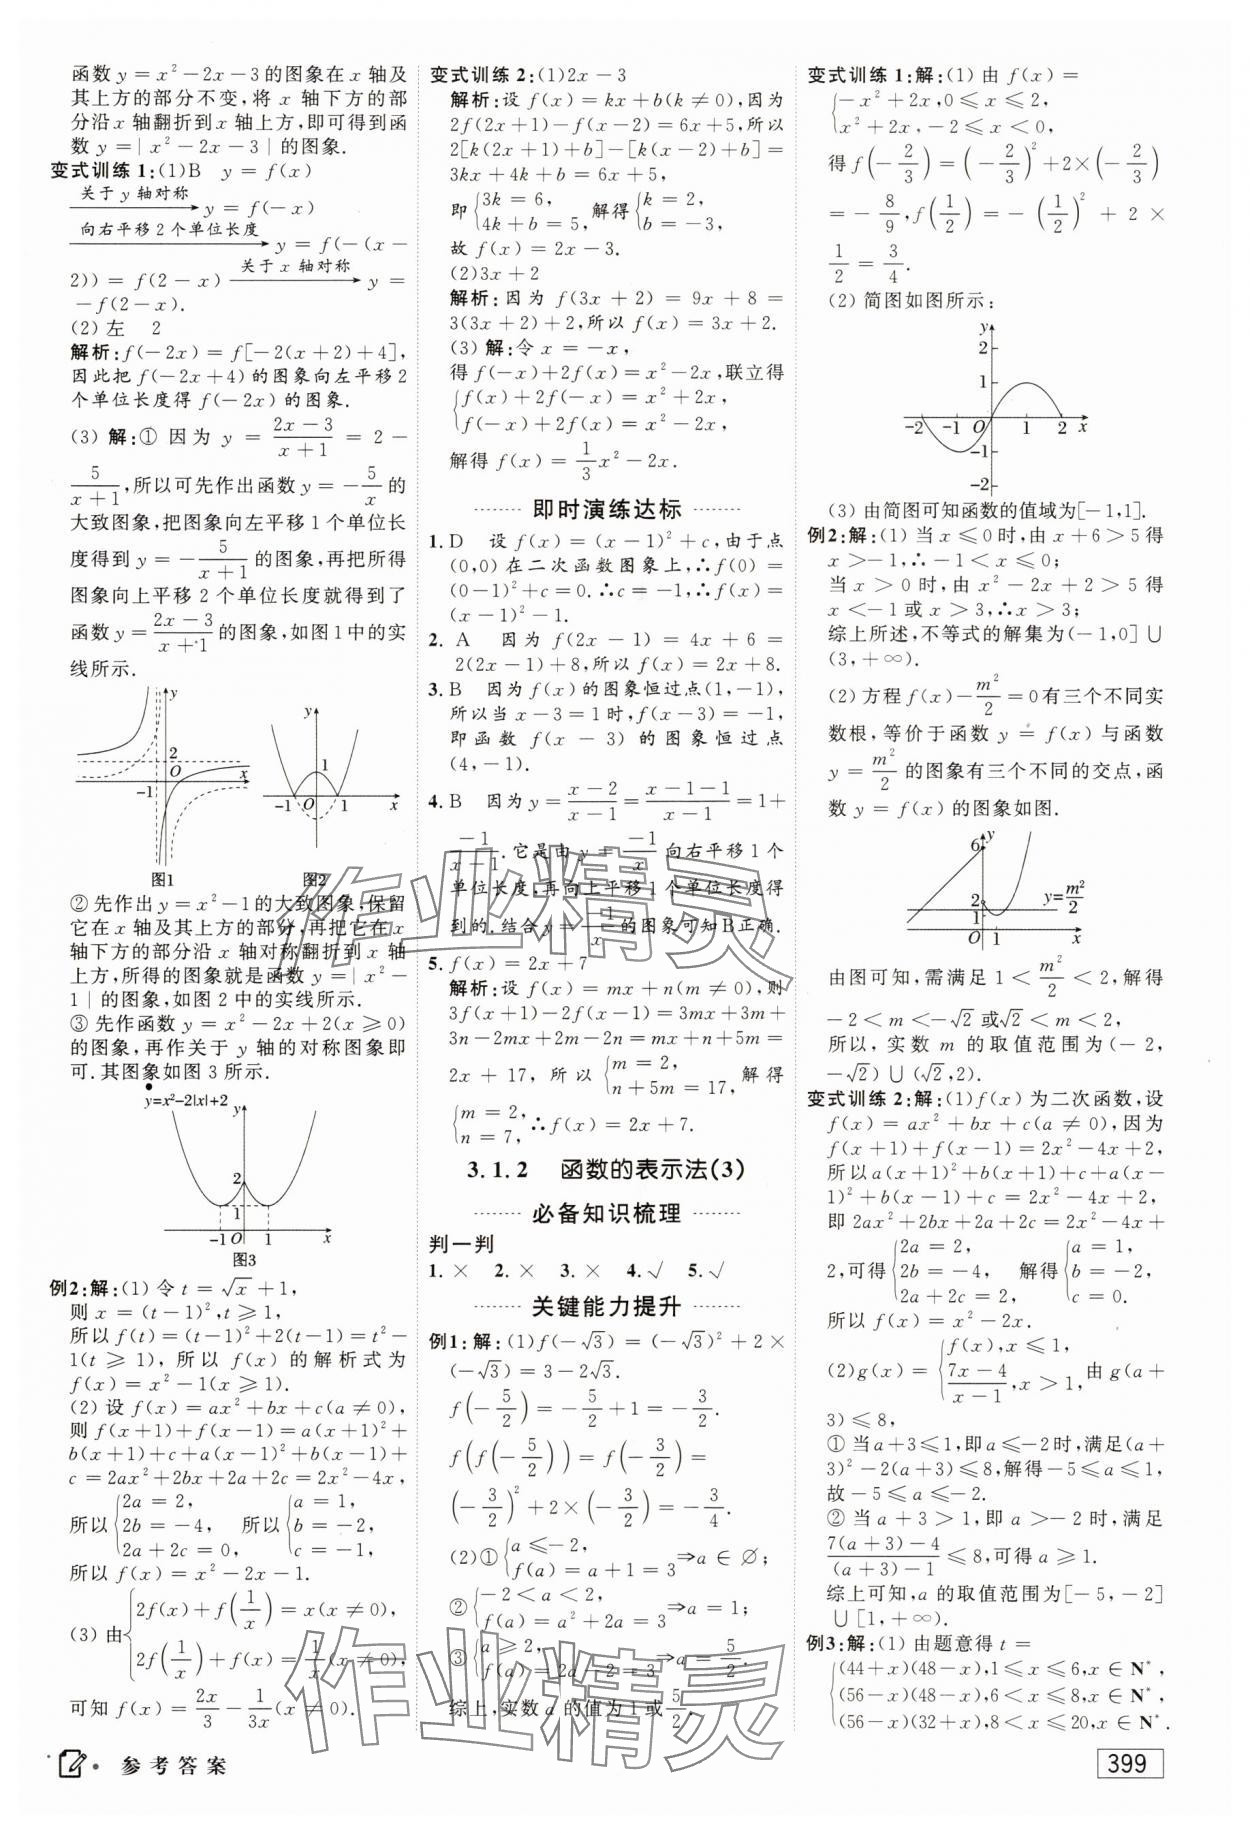 函数 y＝x²－2x－3的图象在 x 轴及
其上方的部分不变,将 x 轴下方的部
分沿 x 轴翻折到 x 轴上方,即可得到函
数 y＝| x²－2x－3 | 的图象.
变式训练 1:(1)B　y＝f(x)
关于 y 轴对称
→y＝f(－x)
向右平移 2 个单位长度
→y＝f(－(x－
关于 x 轴对称
2))＝f(2－x)→y＝
－f(2－x).
(2) 左　2
解析:f(－2x)＝f[－2(x＋2)＋4],
因此把 f(－2x＋4) 的图象向左平移 2
个单位长度得 f(－2x) 的图象.
(3) 解:① 因为 y＝(2x－3)/(x＋1)＝2－
5/(x＋1),所以可先作出函数 y＝－5/x 的
大致图象,把图象向左平移 1 个单位长
度得到 y＝－5/(x＋1) 的图象,再把所得
图象向上平移 2 个单位长度就得到了
函数 y＝(2x－3)/(x＋1) 的图象,如图 1 中的实
线所示.
y
2
O
－1
x
图1
y
1
－1 O 1 x
图2
② 先作出 y＝x²－1 的大致图象,保留
它在 x 轴及其上方的部分,再把它在 x
轴下方的部分沿 x 轴对称翻折到 x 轴
上方,所得的图象就是函数 y＝| x²－
1 | 的图象,如图 2 中的实线所示.
③ 先作函数 y＝x²－2x＋2(x⩾0)
的图象,再作关于 y 轴的对称图象即
可.其图象如图 3 所示.
y=x²－2|x|+2
y
2
1
－1 O 1 x
图3
例2:解:(1) 令 t＝√x＋1,
则 x＝(t－1)²,t⩾1,
所以 f(t)＝(t－1)²＋2(t－1)＝t²－
1(t⩾1), 所以 f(x) 的解析式为
f(x)＝x²－1(x⩾1).
(2) 设 f(x)＝ax²＋bx＋c(a≠0),
则 f(x＋1)＋f(x－1)＝a(x＋1)²＋
b(x＋1)＋c＋a(x－1)²＋b(x－1)＋
c＝2ax²＋2bx＋2a＋2c＝2x²－4x,
所以{2a＝2, 2b＝－4, 2a＋2c＝0,　所以{a＝1, b＝－2, c＝－1,
所以 f(x)＝x²－2x－1.
(3) 由{2f(x)＋f(1/x)＝x(x≠0), 2f(1/x)＋f(x)＝1/x(x≠0),
可知 f(x)＝2x/3－1/(3x)(x≠0).
变式训练 2:(1)2x－3
解析:设 f(x)＝kx＋b(k≠0),因为
2f(2x＋1)－f(x－2)＝6x＋5,所以
2[k(2x＋1)＋b]－[k(x－2)＋b]＝
3kx＋4k＋b＝6x＋5,
即{3k＝6, 4k＋b＝5,　解得{k＝2, b＝－3,
故 f(x)＝2x－3.
(2)3x＋2
解析:因为 f(3x＋2)＝9x＋8＝
3(3x＋2)＋2,所以 f(x)＝3x＋2.
(3) 解:令 x＝－x,
得 f(－x)＋2f(x)＝x²－2x,联立得
{f(x)＋2f(－x)＝x²＋2x, f(－x)＋2f(x)＝x²－2x,
解得 f(x)＝1/3 x²－2x.
即时演练达标
1. D　设 f(x)＝(x－1)²＋c,由于点
(0,0) 在二次函数图象上,∴f(0)＝
(0－1)²＋c＝0.∴c＝－1,∴f(x)＝
(x－1)²－1.
2. A　因为 f(2x－1)＝4x＋6＝
2(2x－1)＋8,所以 f(x)＝2x＋8.
3. B　因为 f(x) 的图象恒过点(1,－1),
所以当 x－3＝1时,f(x－3)＝－1,
即函数 f(x－3) 的图象恒过点
(4,－1).
4. B　因为 y＝(x－2)/(x－1)＝(x－1－1)/(x－1)＝1＋
－1/(x－1).它是由 y＝－1/x 向右平移 1 个
单位长度,再向上平移 1 个单位长度得
到的.结合 y＝－1/x 的图象可知B正确.
5. f(x)＝2x＋7
解析:设 f(x)＝mx＋n(m≠0),则
3f(x＋1)－2f(x－1)＝3mx＋3m＋
3n－2mx＋2m－2n＝mx＋n＋5m＝
2x＋17, 所以{m＝2, n＋5m＝17,　解得
{m＝2, n＝7,　∴f(x)＝2x＋7.
3.1.2　函数的表示法(3)
必备知识梳理
判一判
1. ×　2. ×　3. ×　4. √　5. √
关键能力提升
例1:解:(1)f(－√3)＝(－√3)²＋2×
(－√3)＝3－2√3.
f(－5/2)＝－5/2＋1＝－3/2.
f(f(－5/2))＝f(－3/2)＝
(－3/2)²＋2×(－3/2)＝－3/4.
(2)①{a⩽－2, f(a)＝a＋1＝3⇒a∈∅;
②{－2＜a＜2, f(a)＝a²＋2a＝3⇒a＝1;
③{a⩾2, f(a)＝2a－2＝3⇒a＝5/2.
综上,实数 a 的值为 1 或 5/2.
变式训练 1:解:(1) 由 f(x)＝
{－x²＋2x,0⩽x⩽2, x²＋2x,－2⩽x＜0,
得 f(－2/3)＝(－2/3)²＋2×(－2/3)
＝－8/9,f(1/2)＝－(1/2)²＋2×
1/2＝3/4.
(2) 简图如图所示:
y
2
1
－2 －1 O 1 2 x
－1
－2
(3) 由简图可知函数的值域为[－1,1].
例2:解:(1) 当 x⩽0时,由 x＋6＞5得
x＞－1,∴－1＜x⩽0;
当 x＞0 时,由 x²－2x＋2＞5 得
x＜－1 或 x＞3,∴x＞3;
综上所述,不等式的解集为(－1,0]∪
(3,＋∞).
(2) 方程 f(x)－m²/2＝0有三个不同实
数根,等价于函数 y＝f(x) 与函数
y＝m²/2 的图象有三个不同的交点,函
数 y＝f(x) 的图象如图.
y
6
2
y=m²/2
O 1 x
由图可知,需满足 1＜m²/2＜2,解得
－2＜m＜－√2 或√2＜m＜2,
所以,实数 m 的取值范围为(－2,
－√2)∪(√2,2).
变式训练 2:解:(1)f(x) 为二次函数,设
f(x)＝ax²＋bx＋c(a≠0),因为
f(x＋1)＋f(x－1)＝2x²－4x＋2,
所以 a(x＋1)²＋b(x＋1)＋c＋a(x－
1)²＋b(x－1)＋c＝2x²－4x＋2,
即 2ax²＋2bx＋2a＋2c＝2x²－4x＋
2,可得{2a＝2, 2b＝－4, 2a＋2c＝2,　解得{a＝1, b＝－2, c＝0.
所以 f(x)＝x²－2x.
(2)g(x)＝{f(x),x⩽1, (7x－4)/(x－1),x＞1,由 g(a＋
3)⩽8,
① 当 a＋3⩽1,即 a⩽－2时,满足(a＋
3)²－2(a＋3)⩽8,解得－5⩽a⩽1,
故－5⩽a⩽－2.
② 当 a＋3＞1,即 a＞－2 时,满足
(7(a＋3)－4)/((a＋3)－1)⩽8,可得 a⩾1.
综上可知,a 的取值范围为[－5,－2]
∪[1,＋∞).
例3:解:(1) 由题意得 t＝
{(44＋x)(48－x),1⩽x⩽6,x∈N*,
(56－x)(48－x),6＜x⩽8,x∈N*,
(56－x)(32＋x),8＜x⩽20,x∈N*.
参考答案
399
作业精灵
作业精灵